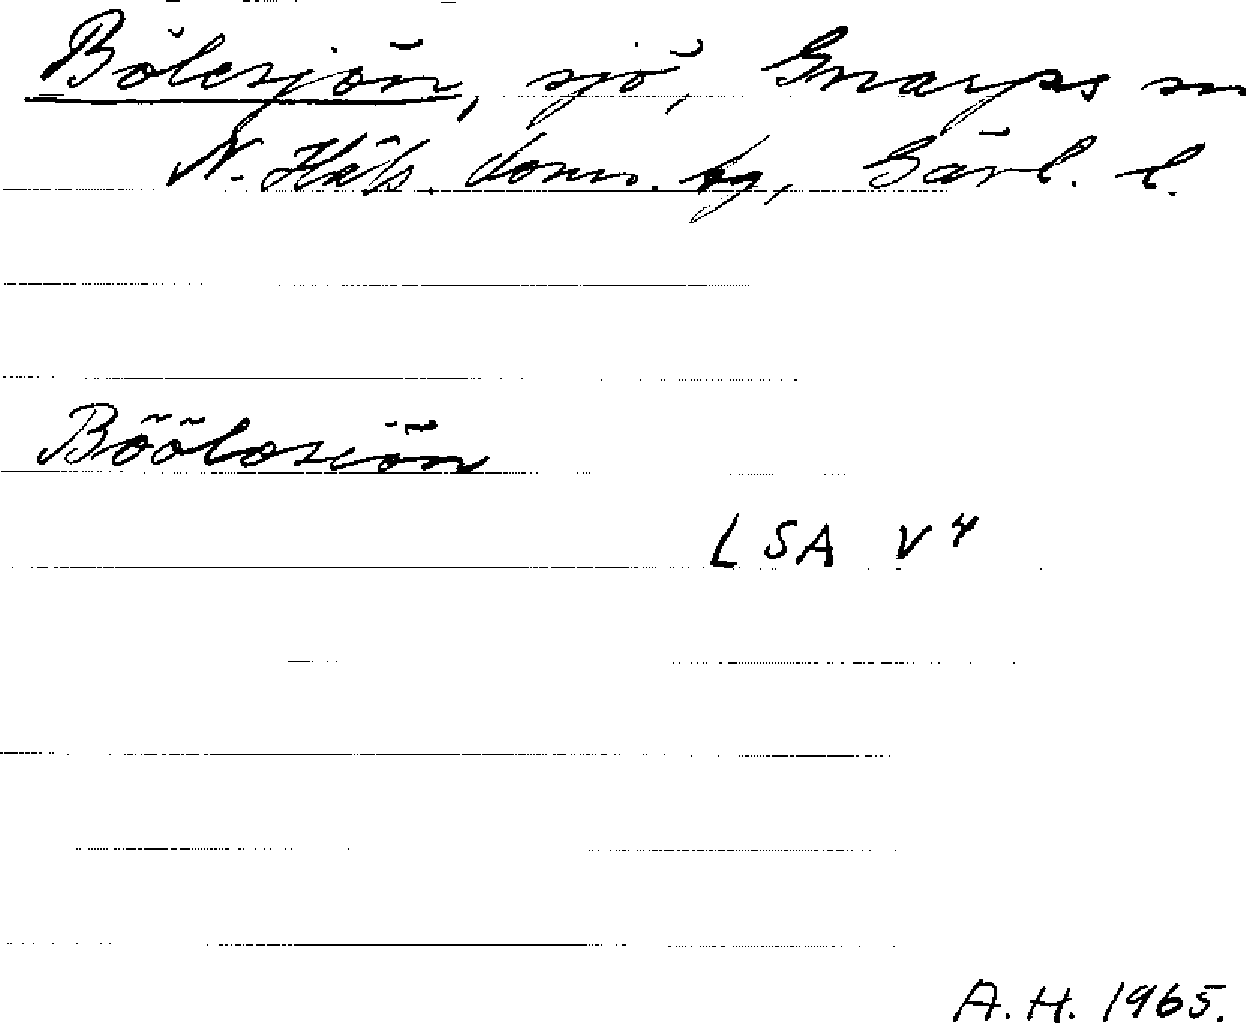 Bölesjön, sjö, Gnarps sn
N. Häls. doms. tg, Gävl. l.
Böölosiön
LSA V4
A.H. 1965.